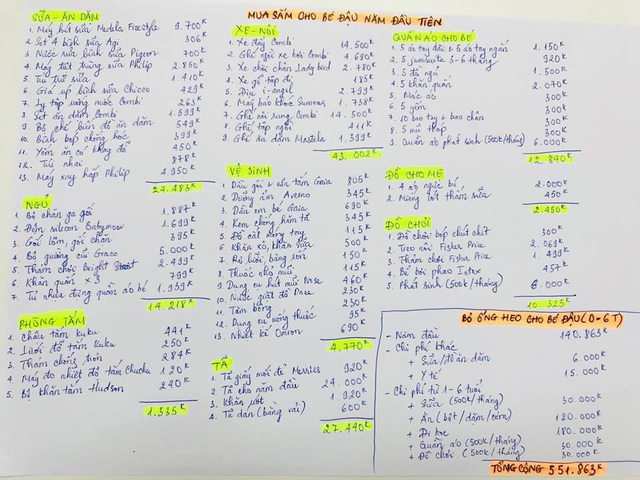 MUA SẮM CHO BÉ ĐẬU NĂM ĐẦU TIÊN
SỮA - ĂN DẶM
1. Máy hút sữa Medela Freestyle 9.700K
2. Set 4 bình sữa Agi 306K
3. Núc sữa bình Pigeon 700K
4. Máy tiệt trùng sữa Philip 2.850K
5. Tủ trữ sữa 1.410K
6. Giá úp bình sữa Chicco 429K
7. Ly tập uống nước Combi 263K
8. Set ăn dặm Combi 1.599K
9. Bộ chế biến đồ ăn dặm 549K
10. Bình bóp chống hóc 399K
11. Yếm ăn cơ không đổ 450K
12. Túi nhai 878K
13. Máy xay hấp Philip 4.950K
24.483K
NGỦ
1. Bộ chăn ga gối 1.887K
2. Đệm silicon Babymoov 1.699K
3. Gối lõm, gối chặn 395K
4. Bộ quây cũi Graco 5.000K
5. Thảm chơi Bright 2.499K
6. Khăn quấn x 3 799K
7. Tủ nhựa đựng quần áo bé 1.939K
14.218K
PHÒNG TẮM
1. Chậu tắm Kuku 441K
2. Lưới đỡ tắm Kuku 250K
3. Thảm chống trơn 284K
4. Máy đo nhiệt độ tắm Chuchu 120K
5. Bộ khăn tắm Hudson 240K
1.335K
XE - NÔI
1. Xe đẩy Combi 14.500K
2. Ghế ngồi xe hơi Combi 4.690K
3. Xe chòi chân Lady bird 2.780K
4. Xe gỗ tập đi 185K
5. Địu i-angel 2.799K
6. Máy báo khóc Summer 1.738K
7. Ghế nôi rung Combi 14.500K
8. Ghế tập ngồi 411K
9. Ghế ăn dặm Mastela 1.399K
43.002K
VỆ SINH
1. Dầu gội & sữa tắm Gaia 805K
2. Dưỡng ẩm Aveeno 345K
3. Dầu em bé Gaia 690K
4. Kem chống hăm tã 345K
5. Đồ cắt móng tay 115K
6. Khăn xô, khăn sữa 500K
7. Rơ lưỡi bằng xơn 150K
8. Thuốc nhỏ mũi 115K
9. Dụng cụ hút mũi Nose 460K
10. Nước giặt đồ Dnee 230K
11. Tăm bông 230K
12. Dụng cụ uống thuốc 95K
13. Nhiệt kế Omron 690K
4.770K
TÃ
1. Tã giấy mới đẻ Merries 920K
2. Tã cho năm đầu 24.000K
3. Khăn ướt 1.920K
4. Tã dán (bằng vải) 600K
27.440K
QUẦN ÁO CHO BÉ
1. 5 áo tay dài & 5 áo tay ngắn 1.150K
2. 5 jumsuite 3-6 tháng 920K
3. 5 đồ ngủ 1.500K
4. 5 khăn quấn 2.070K
5. Móc áo 300K
6. 5 yếm 300K
7. 10 bao tay & bao chân 300K
8. 5 mũ thóp 300K
9. Quần áo phát sinh (500K/tháng) 6.000K
12.840K
ĐỒ CHO MẸ
1. 4 áo ngực bú 2.000K
2. Miếng lót thấm sữa 450K
2.450K
ĐỒ CHƠI
1. Đồ chơi bóp chút chít 300K
2. Treo nôi Fisher Price 2.069K
3. Thảm chơi Fisher Price 1.499K
4. Bể bơi phao Intex 457K
5. Phát sinh (500K/tháng) 6.000K
10.325K
BỎ ỐNG HEO CHO BÉ ĐẬU (0-6T)
- Năm đầu 140.863K
- Chi phí khác
+ Sữa/đồ ăn dặm 6.000K
+ Y tế 15.000K
- Chi phí từ 1-6 tuổi
+ Sữa (500K/tháng) 30.000K
+ Ăn (bột/dặm/cơm) 120.000K
+ Đi học 180.000K
+ Quần áo (500K/tháng) 30.000K
+ Đồ chơi (500K/tháng) 30.000K
TỔNG CỘNG 551.863K